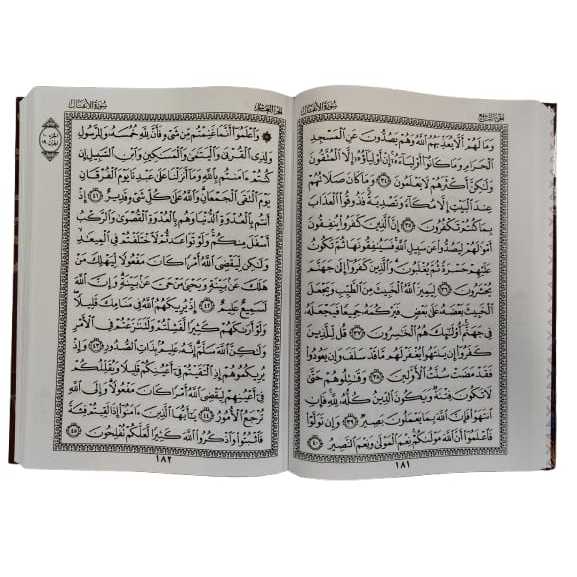 سورة الأنفال
الجزء التاسع
وَمَا لَهُمْ أَلَّا يُعَذِّبَهُمُ اللَّهُ وَهُمْ يَصُدُّونَ عَنِ الْمَسْجِدِ
الْحَرَامِ وَمَا كَانُوا أَوْلِيَاءَهُ إِنْ أَوْلِيَاؤُهُ إِلَّا الْمُتَّقُونَ
وَلَٰكِنَّ أَكْثَرَهُمْ لَا يَعْلَمُونَ ﴿٣٤﴾ وَمَا كَانَ صَلَاتُهُمْ
عِندَ الْبَيْتِ إِلَّا مُكَاءً وَتَصْدِيَةً فَذُوقُوا الْعَذَابَ
بِمَا كُنتُمْ تَكْفُرُونَ ﴿٣٥﴾ إِنَّ الَّذِينَ كَفَرُوا يُنفِقُونَ
أَمْوَالَهُمْ لِيَصُدُّوا عَن سَبِيلِ اللَّهِ فَسَيُنفِقُونَهَا ثُمَّ تَكُونُ
عَلَيْهِمْ حَسْرَةً ثُمَّ يُغْلَبُونَ وَالَّذِينَ كَفَرُوا إِلَىٰ جَهَنَّمَ
يُحْشَرُونَ ﴿٣٦﴾ لِيَمِيزَ اللَّهُ الْخَبِيثَ مِنَ الطَّيِّبِ وَيَجْعَلَ
الْخَبِيثَ بَعْضَهُ عَلَىٰ بَعْضٍ فَيَرْكُمَهُ جَمِيعًا فَيَجْعَلَهُ
فِي جَهَنَّمَ أُولَٰئِكَ هُمُ الْخَاسِرُونَ ﴿٣٧﴾ قُل لِّلَّذِينَ
كَفَرُوا إِن يَنتَهُوا يُغْفَرْ لَهُم مَّا قَدْ سَلَفَ وَإِن يَعُودُوا
فَقَدْ مَضَتْ سُنَّتُ الْأَوَّلِينَ ﴿٣٨﴾ وَقَاتِلُوهُمْ حَتَّىٰ
لَا تَكُونَ فِتْنَةٌ وَيَكُونَ الدِّينُ كُلُّهُ لِلَّهِ فَإِنِ
انتَهَوْا فَإِنَّ اللَّهَ بِمَا يَعْمَلُونَ بَصِيرٌ ﴿٣٩﴾ وَإِن تَوَلَّوْا
فَاعْلَمُوا أَنَّ اللَّهَ مَوْلَاكُمْ نِعْمَ الْمَوْلَىٰ وَنِعْمَ النَّصِيرُ ﴿٤٠﴾
١٨١
سورة الأنفال
الجزء العاشر
وَاعْلَمُوا أَنَّمَا غَنِمْتُم مِّن شَيْءٍ فَأَنَّ لِلَّهِ خُمُسَهُ وَلِلرَّسُولِ
وَلِذِي الْقُرْبَىٰ وَالْيَتَامَىٰ وَالْمَسَاكِينِ وَابْنِ السَّبِيلِ إِن
كُنتُمْ آمَنتُم بِاللَّهِ وَمَا أَنزَلْنَا عَلَىٰ عَبْدِنَا يَوْمَ الْفُرْقَانِ
يَوْمَ الْتَقَى الْجَمْعَانِ وَاللَّهُ عَلَىٰ كُلِّ شَيْءٍ قَدِيرٌ ﴿٤١﴾ إِذْ
أَنتُم بِالْعُدْوَةِ الدُّنْيَا وَهُم بِالْعُدْوَةِ الْقُصْوَىٰ وَالرَّكْبُ
أَسْفَلَ مِنكُمْ وَلَوْ تَوَاعَدتُّمْ لَاخْتَلَفْتُمْ فِي الْمِيعَادِ
وَلَٰكِن لِّيَقْضِيَ اللَّهُ أَمْرًا كَانَ مَفْعُولًا لِّيَهْلِكَ مَنْ
هَلَكَ عَن بَيِّنَةٍ وَيَحْيَىٰ مَنْ حَيَّ عَن بَيِّنَةٍ وَإِنَّ اللَّهَ
لَسَمِيعٌ عَلِيمٌ ﴿٤٢﴾ إِذْ يُرِيكَهُمُ اللَّهُ فِي مَنَامِكَ قَلِيلًا
وَلَوْ أَرَاكَهُمْ كَثِيرًا لَّفَشِلْتُمْ وَلَتَنَازَعْتُمْ فِي الْأَمْرِ
وَلَٰكِنَّ اللَّهَ سَلَّمَ إِنَّهُ عَلِيمٌ بِذَاتِ الصُّدُورِ ﴿٤٣﴾ وَإِذْ
يُرِيكُمُوهُمْ إِذِ الْتَقَيْتُمْ فِي أَعْيُنِكُمْ قَلِيلًا وَيُقَلِّلُكُمْ
فِي أَعْيُنِهِمْ لِيَقْضِيَ اللَّهُ أَمْرًا كَانَ مَفْعُولًا وَإِلَى اللَّهِ
تُرْجَعُ الْأُمُورُ ﴿٤٤﴾ يَا أَيُّهَا الَّذِينَ آمَنُوا إِذَا لَقِيتُمْ فِئَةً
فَاثْبُتُوا وَاذْكُرُوا اللَّهَ كَثِيرًا لَّعَلَّكُمْ تُفْلِحُونَ ﴿٤٥﴾
١٨٢